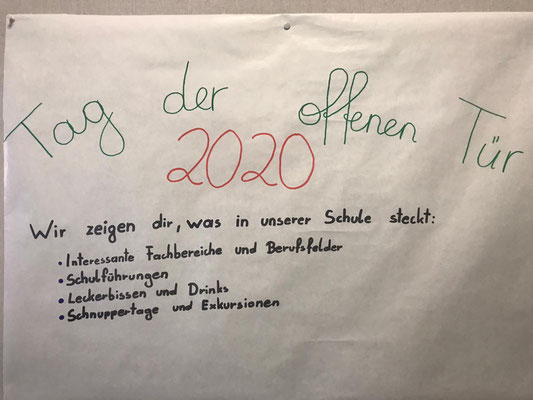 Tag der offenen Tür
2020
Wir zeigen dir, was in unserer Schule steckt:
• Interessante Fachbereiche und Berufsfelder
• Schulführungen
• Leckerbissen und Drinks
• Schnuppertage und Exkursionen